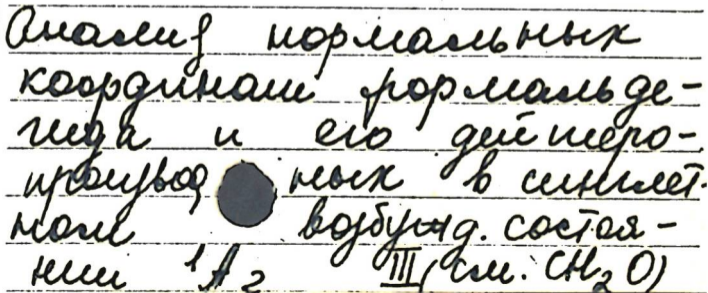 Анализ нормальных
координат формальде-
гида и его дейтеро-
производных в синглет-
ном возбужд. состоя-
нии ¹A₂ III (см. CH₂O)